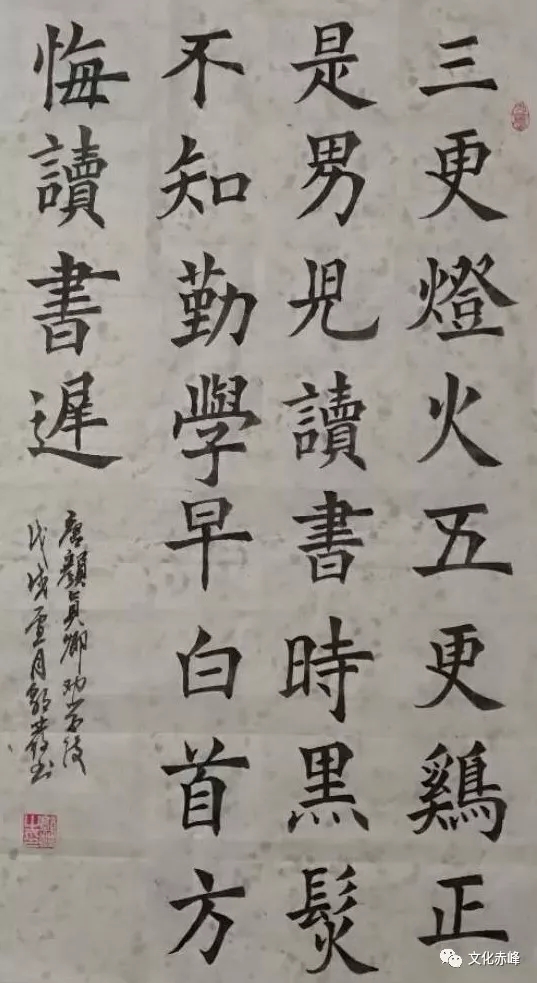 三更燈火五更鷄正
是男兒讀書時黑髮
不知勤學早白首方
悔讀書遲
唐顏真卿劝学
戊戌雪月
文化赤峰